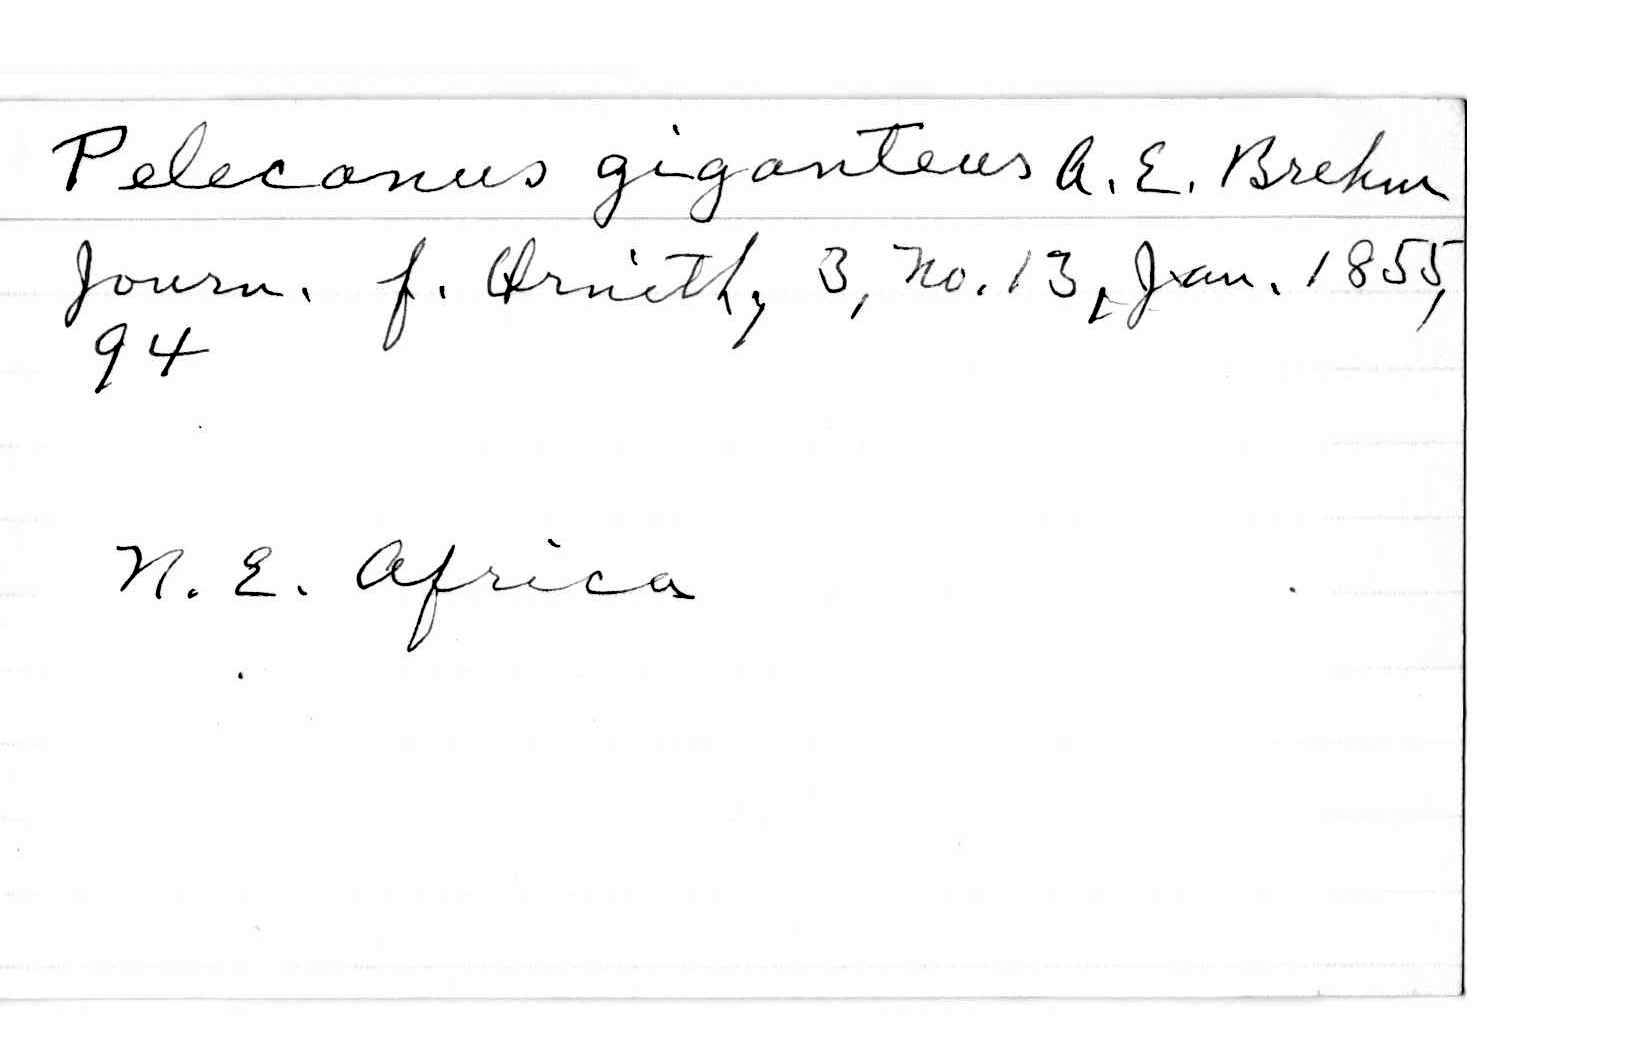 Pelecanus giganteus A. E. Brehm
Journ. f. Ornith, 3, No. 13, Jan. 1855,
94
N. E. Africa